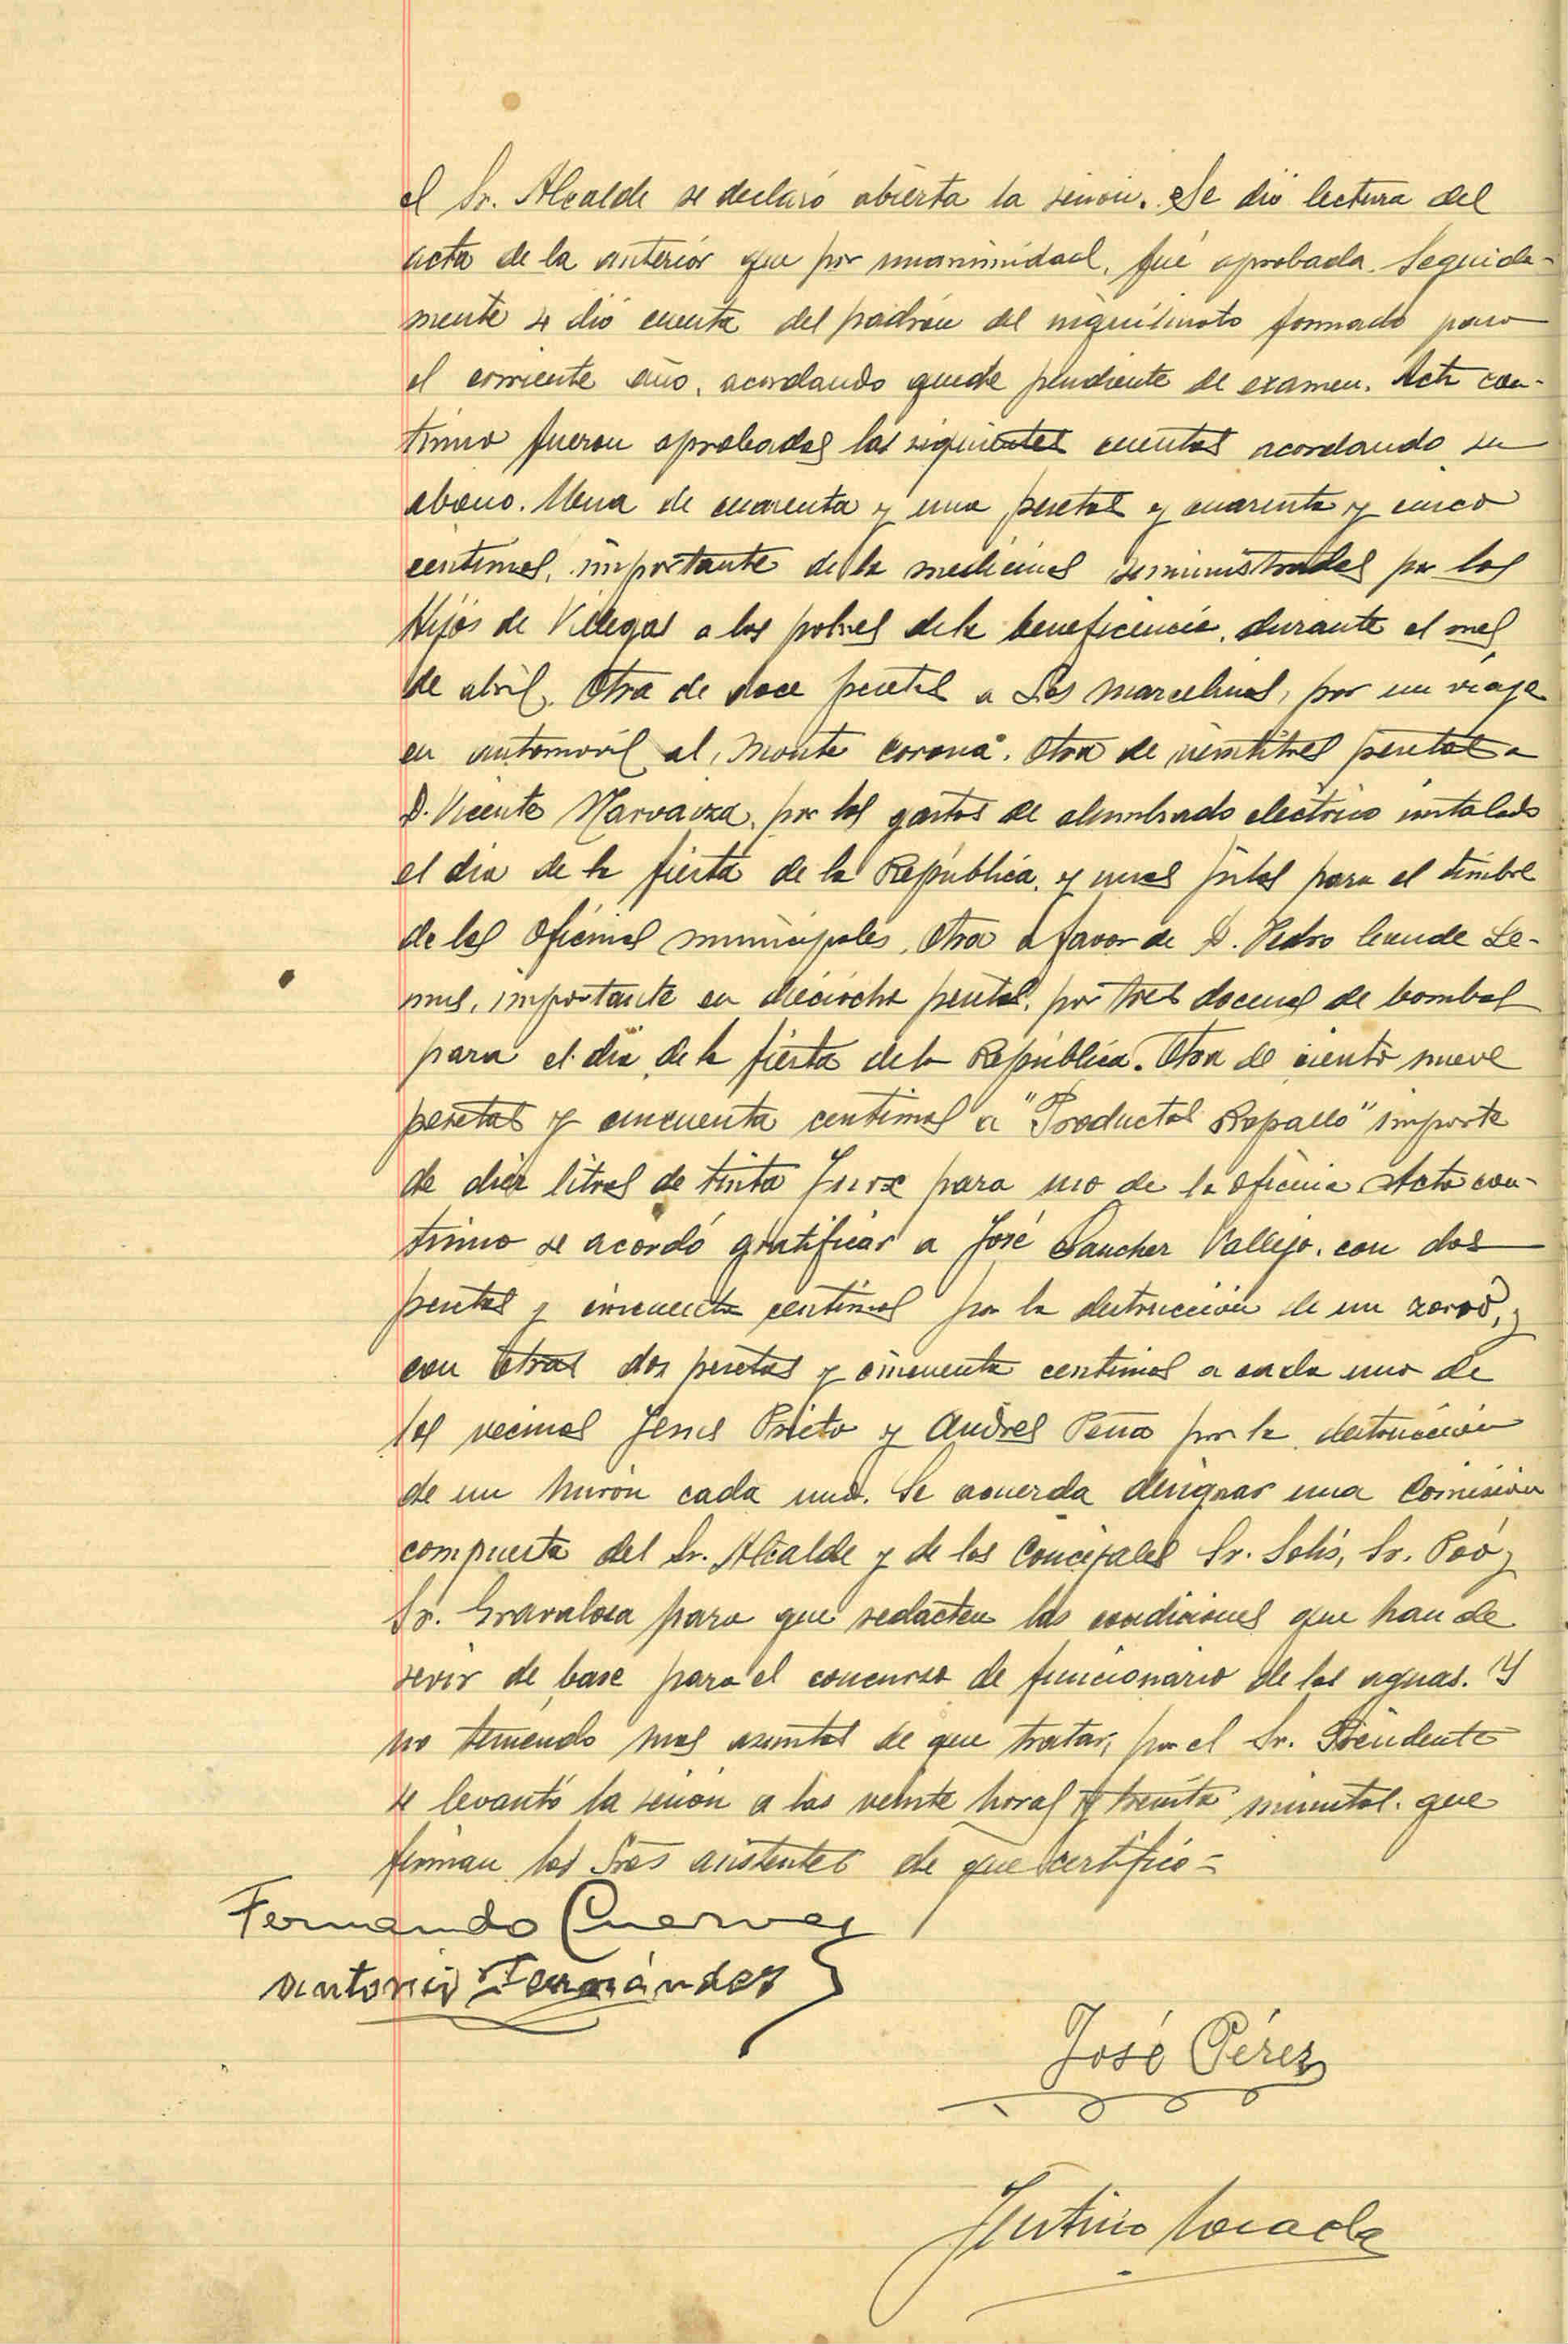 el Sr. Alcalde se declaró abierta la sesión. Se dió lectura del
acta de la anterior que por unanimidad, fué aprobada. Seguida-
mente se dió cuenta del padrón del inquilinato formado para
el corriente año, acordando quede pendiente de examen. Acto con-
tinuo fueron aprobadas las siguientes cuentas acordando su
abono. Una de cuarenta y una pesetas y cuarenta y cinco
centimos, importante de la medicinas suministradas por los
Hijos de Villegas a los pobres de la beneficencia, durante el mes
de abril. Otra de doce pesetas a Los Marcelinos, por un viaje
en automovil al Monte Corona. Otra de veintitres pesetas a
D. Vicente por los gastos de alumbrado electrico instalado
el dia de la fiesta de la República, y unas pilas para el timbre
de las Oficinas municipales. Otra a favor de D. Pedro Conde Le-
mus, importante en dieciocho pesetas, por tres docenas de bombas
para el dia de la fiesta de la República. Otra de ciento nueve
pesetas y cincuenta centimos a "Productos" importe
de diez litros de tinta para uso de la oficina Acto con-
tinuo se acordó gratificar a José Sanchez Vallejo, con dos
pesetas y cincuenta centimos por la destrucción de un zorro, y
con otras dos pesetas y cincuenta centimos a cada uno de
los vecinos Jesus Prieto y Andres Peña por la destrucción
de un hurón cada uno. Se acuerda designar una Comisión
compuesta del Sr. Alcalde y de los Concejales Sr. Solis, Sr. Poó y
Sr. Gravalosa para que redacten las condiciones que han de
sevir de base para el concurso de funcionario de las aguas. Y
no teniendo mas asuntos de que tratar, por el Sr. Presidente
se levantó la sesión a las veinte horas y treinta minutos. que
firman los Sres asistentes de que certifico=
Fernando Cuervas
Antonio Fernández
José Pérez
Justino Losada